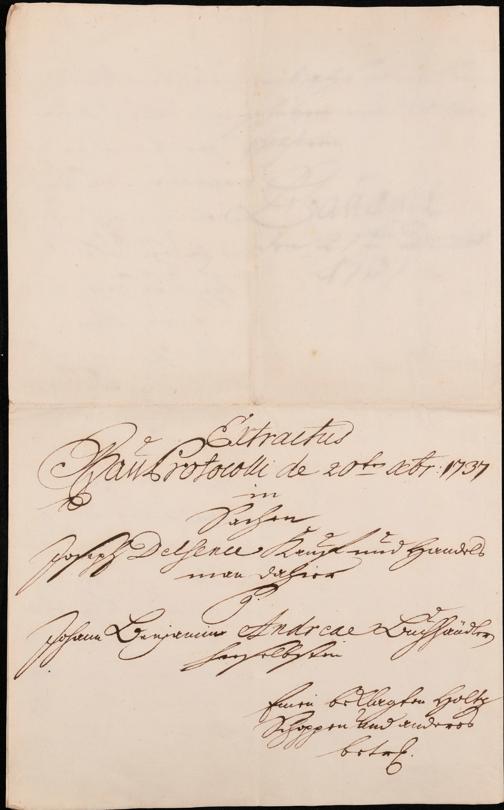 Extractus
Bau Protocolli de 20ten Xbr: 1737
in
Sachen
Joseph Kauf und Handels
man dahier
Johann Benjamin Andreae Buchhändler
hieselbsten
Einen beklagten Holtz
Schoppen und anderes
betref.